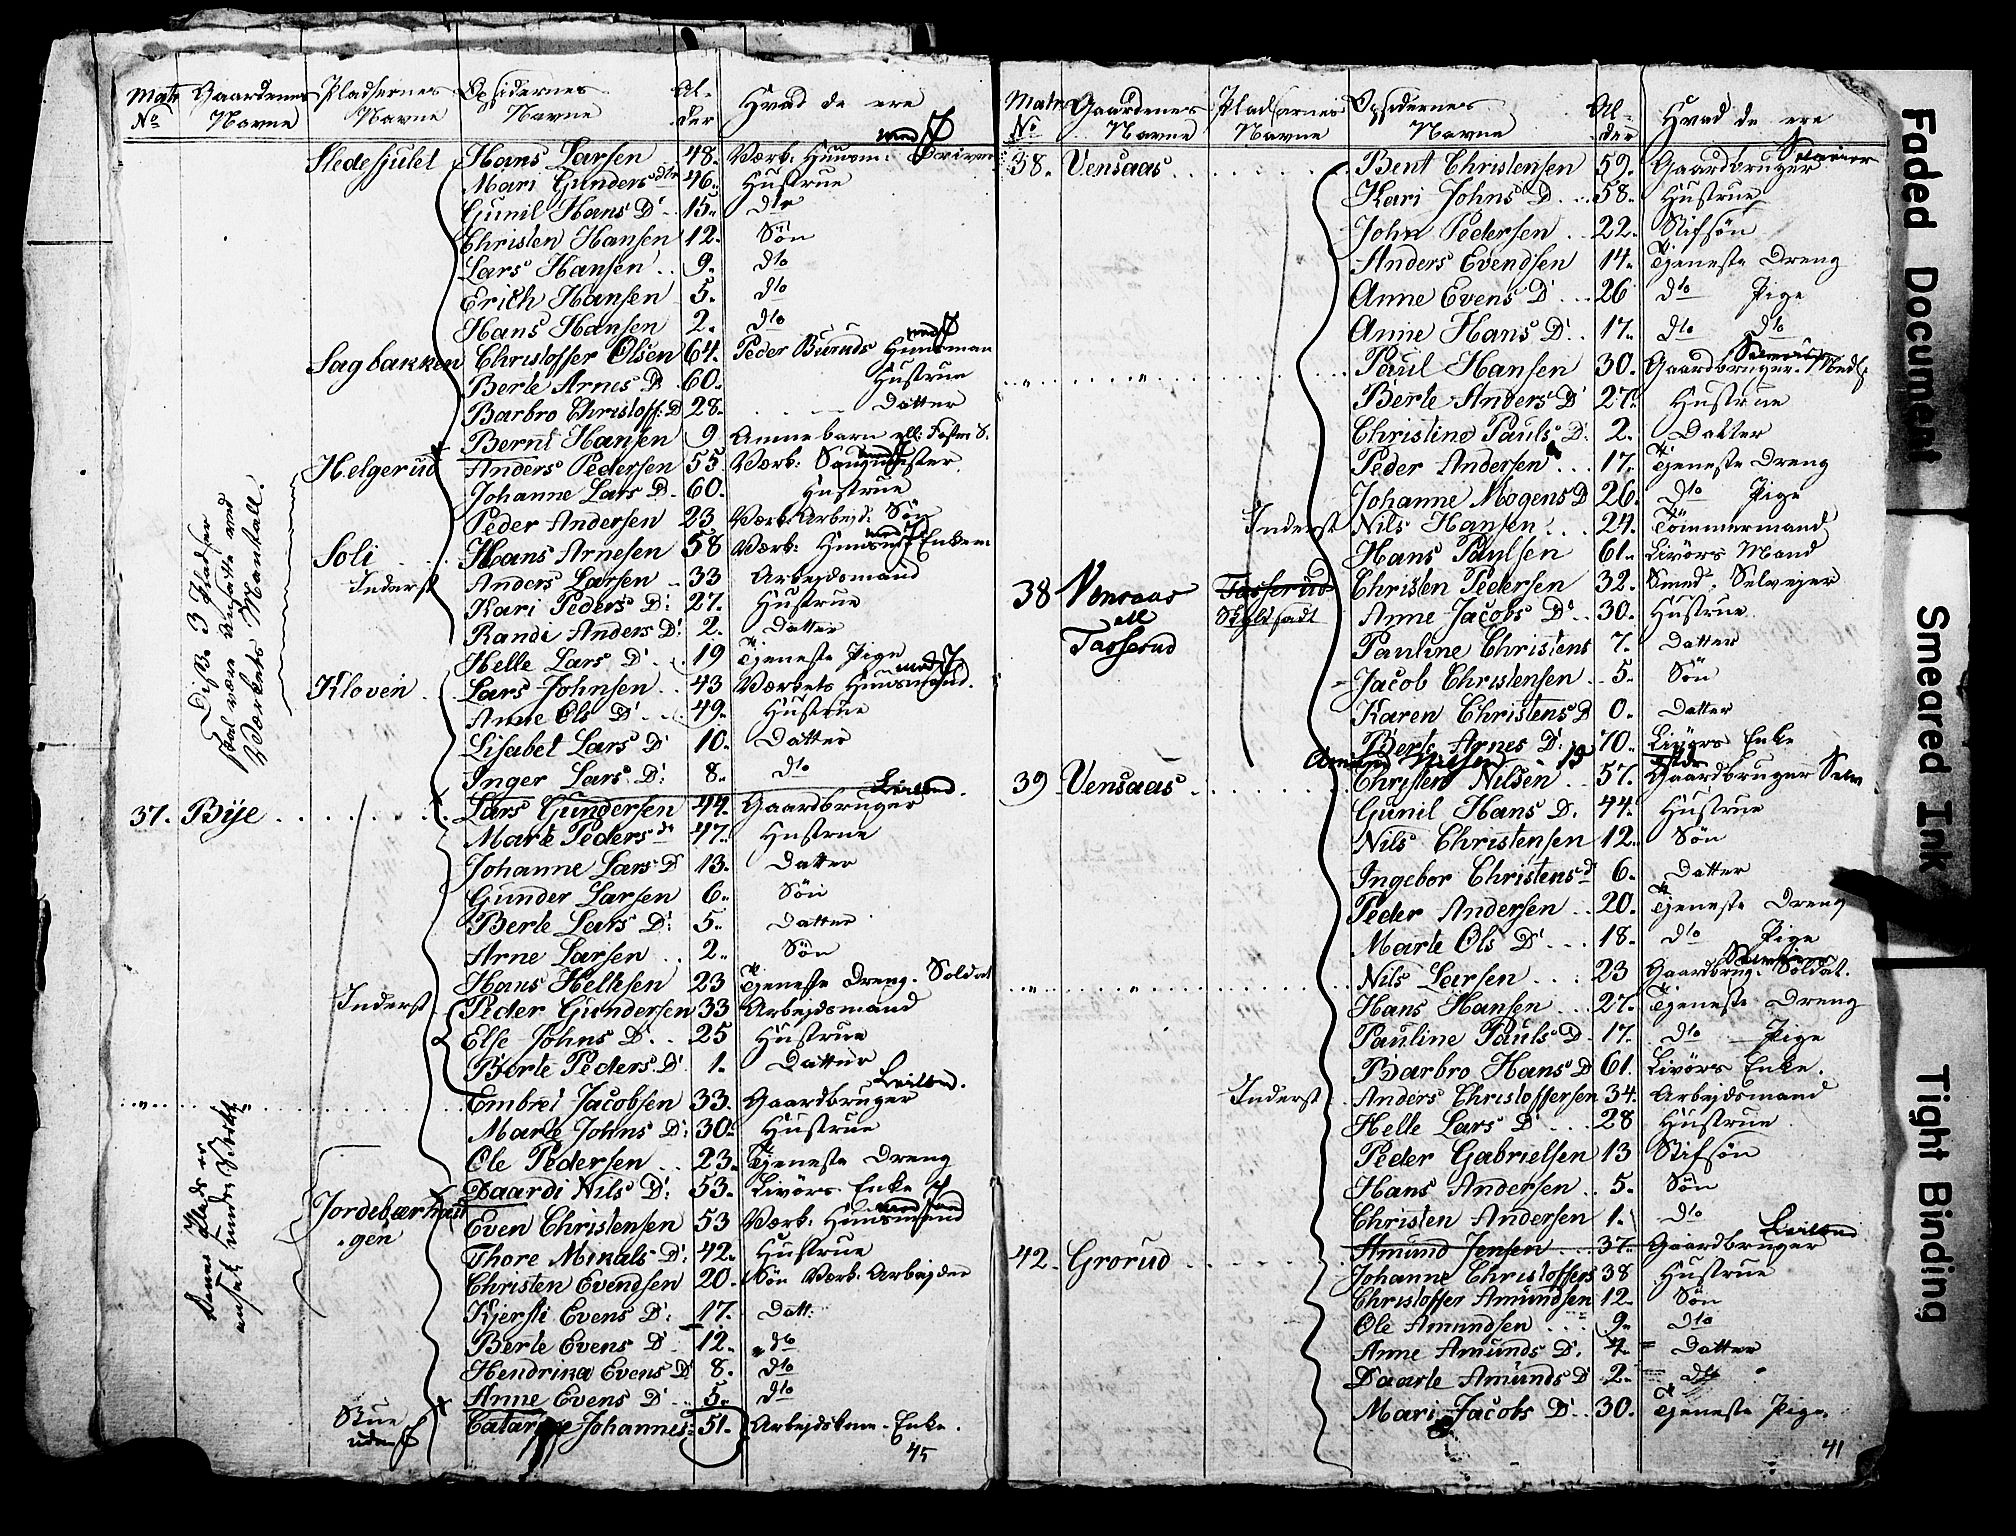 Matr Gaardenes Pladsernes Opsidernes Al- Hvad de ere
No Navne Navne Navne der
Hans Larsen 48. Værk: Huusm:
Mari Gundersdtr 46. Hustrue
Gunil Hans D. 15. dtr
Christen Hansen 12. Søn
Lars Hansen 9. dto
Erich Hansen 5. dto
Hans Hansen 2. dto
Sagbakken Christoffer Olsen 64. Peder Buruds Huusman
Berte Arnes D 60. Hustrue
Barbro Christoff: D 28. Datter
Bernt Hansen 9 Ammebarn ell: Foster S.
Helgerud Anders Pedersen 55 Værk: Saugmester
Johanne Lars D. 60. Hustrue
Peder Andersen 23 Værk: Arbejd: Søn
Soli Hans Arnesen 58 Værk: Enkem:
Inderst Anders Larsen 33 Arbejdsmand
Kari Peders D: 27. Hustrue
Randi Anders D: 2. Datter
Helle Lars D. 19 Tjeneste Pige
Kloven Lars Johnsen 43 Værkets Huusmand.
Anne Ols D. 49. Hustrue
Lisabet Lars D 10. Datter
Inger Lars D: 8. dto
Disse 3 Pladser
skal være ansatte ved
Værkets Mantall.
37. Bije Lars Gundersen 44. Gaardbruger Leilend.
Marte Peders dr 47. Hustrue
Johanne Lars D 13. Datter
Gunder Larsen 6. Søn
Berte Lars D: 5. Datter
Arne Larsen 2. Søn
Hans Helhsen 23 Tjeneste Dreng. Soldat
Inderst Peder Gundersen 33 Arbejdsmand
Else Johns D. 25 Hustrue
Berte Peders D. 1. Datter
Embret Jacobsen 33. Gaardbruger Leilend.
Marte Johns D: 30. Hustrue
Ole Pedersen 23. Tjeneste Dreng
Daardi Nils D: 53. Livørs Enke
Even Christensen 53 Værk: Huusmand
Thore Mikals D: 42. Hustrue
Christen Evendsen 20. Søn Værk: Arbejder
Kjersti Evens D: 17. Datt:
Berte Evens D. 12. do
Hendrina Evens D 8. dto
Anne Evens D. 5. dto
Johannes 51. Enke.
Denne Plads er
ansat under Verket
45
Matr Gaardenes Pladsernes Opsidernes Al- Hvad de ere
No Navne Navne Navne der
58. Vensaas Bent Christensen 59. Gaardbruger Selveier
Kari Johns D. 58. Hustrue
John Pedersen 22. Stifsøn
Anders Evendsen 14. Tjeneste Dreng
Anne Evens D 26 dto Pige
Anne Hans D. 17. dto dto
Paul Hansen 30. Gaardbruger.
Berte Anders D 27. Hustrue
Christine Pauls D. 2. Datter
Peder Andersen 17. Tjeneste Dreng
Johanne Mogens D 26. dto Pige
Inderst Nils Hansen 24. Tømmermand
Hans Paulsen 61. Livørs Mand
38 Vensaas Tasserud Christen Pedersen 32. Smed. Selvejer
ell Anne Jacobs D. 30. Hustrue
Tasserud Pauline Christens 7. Datter
Jacob Christensen 5. Søn
Karen Christens D 0. Datter
Berte Arnes D: 70. Livørs Enke
Amund Nilsen 13
39 Vensaas Christen Nilsen 57. Gaardbruger
Gunil Hans D. 44. Hustrue
Nils Christensen 12. Søn
Ingebor Christens d 6. Datter
Peder Andersen 20. Tjeneste Dreng
Marte Ols D. 18. dto Pige
Nils Larsen 23 Gaardbrug. Soldat.
Hans Hansen 27. Tjeneste Dreng
Pauline Pauls D. 17. dto Pige
Barbro Hans D 61. Livørs Enke.
Inderst Anders Christoffersen 34. Arbejdsmand
Helle Lars D 28 Hustrue
Peder Gabrielsen 13 Stifsøn
Hans Andersen 5. Søn
Christen Andersen 1. dto
42. Grorud Amund Jensen 37. Gaardbruger Leilend
Johanne Christoffers 38 Hustrue
Christoffer Amundsen 12. Søn
Ole Amundsen 9. dto
Anne Amunds D. 4. Datter
Daarte Amunds D 2. dto
Mari Jacobs D. 30. Tjeneste Pige.
41
Faded Document
Smeared Ink
Tight Binding